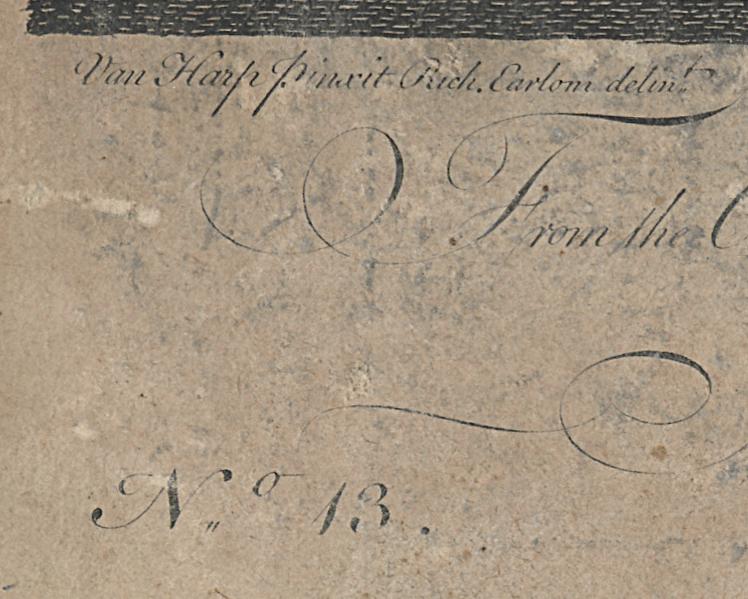 Van Harp Pinxit Rich. Earlom delin.t
From the
N.o 13.